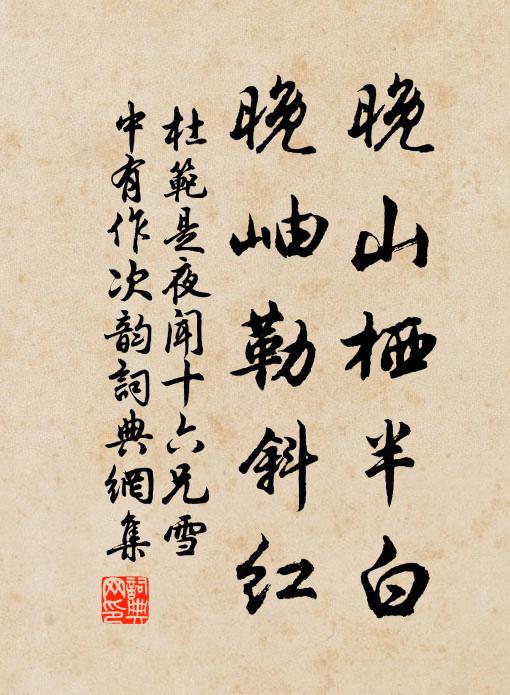 晚山栖半白
晚岫勒斜红
杜範是夜闻十六兄雪
中有作次韵詞典網集
詞典網印